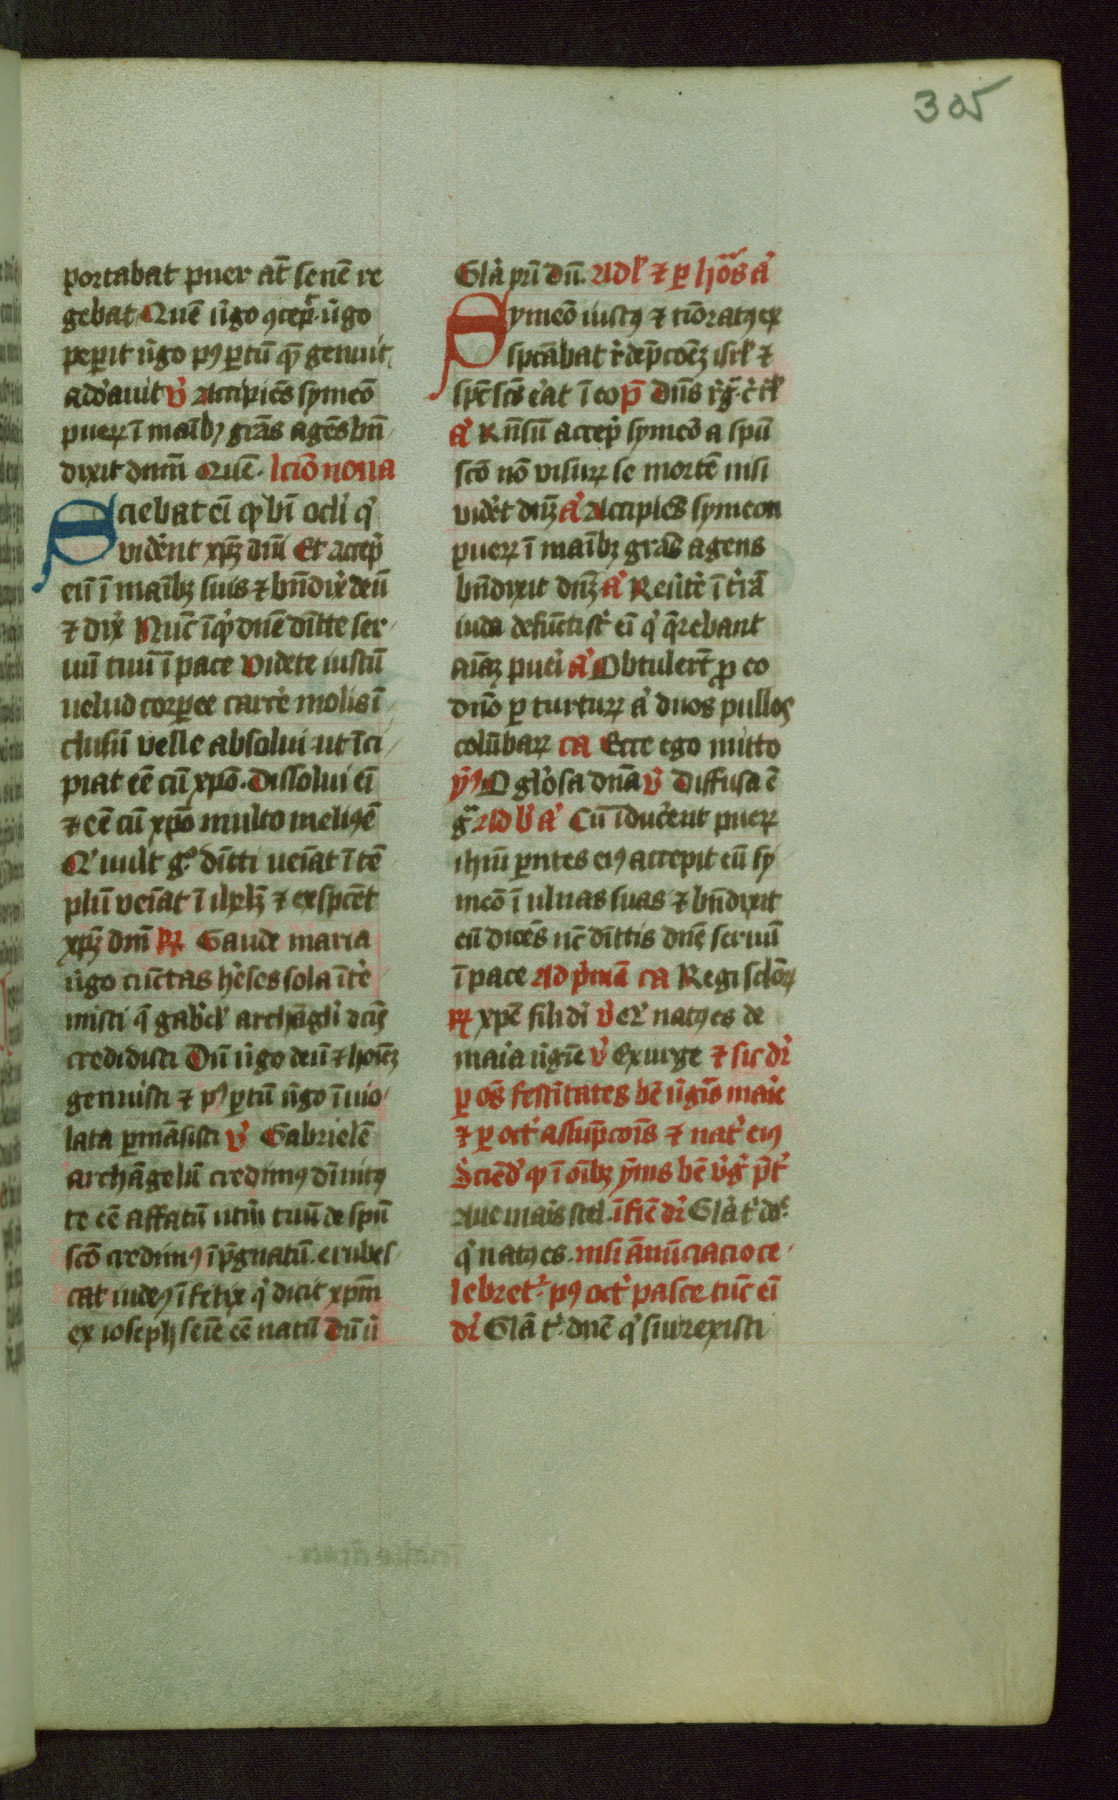 305
portabat puer at̄ senē re
gebat Quē ūgo ꝯcep̄. ūgo
peꝑit ūgo pꝰ ꝑtū quē genuit
adoͬauit v̄ Accipiēs symeō
pueꝝ ī maībꝫ gr̄as agēs bn̄
dixit dnm̄ Quē. lcīo nona
Sciebat eī qꝫ bī ocli q̄
vidēnt xpꝫ dnī Et accep̄
eū ī maībꝫ suis ⁊ bn̄dix̄ deū
⁊ dix̄ Nūc īqͥ dnē dītte ser
uū tuū ī pace Videte iustū
uelud corꝑee carcē molis ī
clusū velle absolui ut īci
piat eē cū xpō. Dissolui eī
⁊ eē cū xpō multo meliꝰ ē
Qͥ uult gͦ dītti ueīat ī tē
plū veīat ī ihrlꝫ ⁊ exspcēt
xpꝫ dnī ꝶ Gaude maria
ūgo cūctas hēses sola ītē
misti q̄ gabͥel archāgli dc̄is
credidisti Dū ūgo deū ⁊ hoīēꝫ
genuisti ⁊ pꝰ ꝑtū ūgo īuio
lata ꝑmāsisti v̄ Gabrielē
archāgelū credimꝰ dīnitꝰ
te eē affatū utm̄ tuū de spū
scō credimꝰ īp̄gnatū. erubes
cat iudeꝰ īfelix qͥ dicit xpm̄
ex ioseph seīe eē natū Dū ū
Glā pr̄i dn̄. Ad lͣ ⁊ ꝑ hōͣs aͣ
Symeō iustꝰ ⁊ tīoratꝰ ex
spcābat r̄dēpcōēꝫ isrl ⁊
sp̄c scs̄ eͬat ī eo p̄ Dn̄s
aͣ Rn̄sū accep̄ symeō a spū
scō nō visuꝝ se mortē nisi
vidēt dnꝫ aͣ Accipiēs symeon
pueꝝ ī maībꝫ gr̄as agens
bn̄dixit dnꝫ aͣ Reūtē ī tr̄ā
iuda defūctist̄ eī qͥ q̄rebant
aīaꝫ pueī aͣ Obtulert̄ ꝓ eo
dnō ꝑ turtuꝝ aͣ duos pullos
colūbaꝝ ca Ecce ego mitto
ymꝰ O glōsa dnā v̄ Diffusa ē
gͣ Ad b̄ aͣ Cū īducēnt pueꝝ
ihūm pͣntes eiꝰ accepit eū sy
meō ī ulnas suas ⁊ bn̄dixit
eū dicēs nc̄ dīttis dnē seruū
ī pace Ad pͥmā ca Regi sclōꝝ
ꝶ xpē fili dī v̄ Qͥ natꝰ es de
maīa ūgīe v̄ Exurge ⁊ sic dr̄
ꝑ oēs festītates bē ūgīs maīe
⁊ ꝑ oct̄ assūpcōīs ⁊ nat̄ eiꝰ
Sciēdͫ qꝫ ī oībꝫ ymīs bē v̄gͥ pͣt̄
Aue mais stel. īfiē dr̄ Glā tͥ dē
qͥ natꝰ es. nisi ānūciacio ce
lebret̄. pꝰ oct̄ pasce tūc eī
dr̄ Glā tͥ dnē qͥ surrexisti